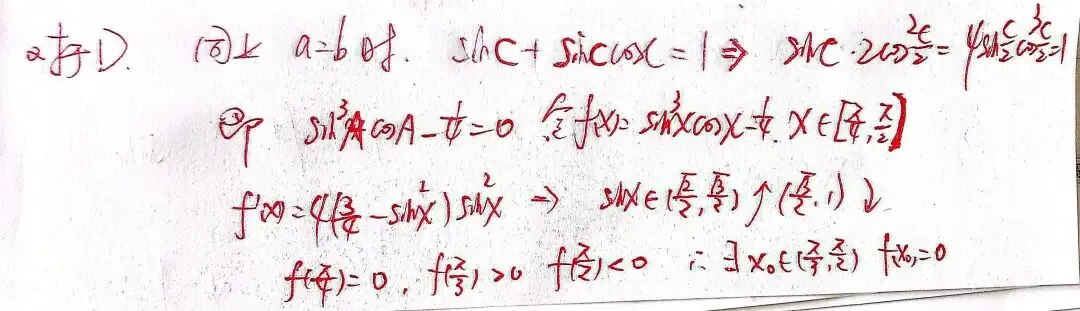 对于D. 同上 a=b时. sinC + sinCcosC = 1 ⇒ sinC·2cos²C/2 = 4sinC/2cos³C/2=1
即 sin³AcosA - 1/4 = 0 令f(x) = sin³xcosx - 1/4. x∈[π/4, π/2]
f'(x) = 4(3/4 - sin²x)sin²x ⇒ sinx∈(√2/2, √3/2)↑(√3/2, 1)↓
f(π/4) = 0, f(π/3) > 0 f(π/2) < 0 ∴∃x₀∈(π/3, π/2) f(x₀) = 0